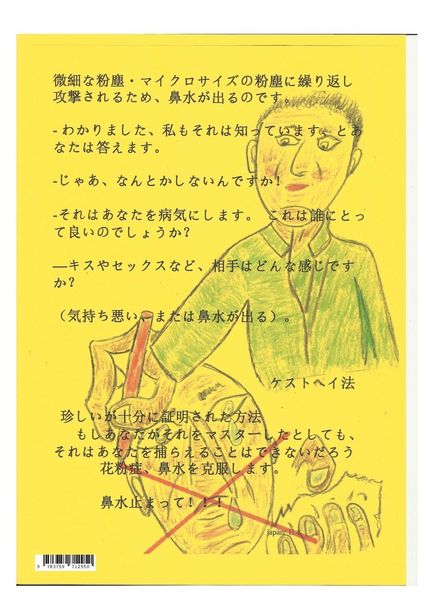 微細な粉塵・マイクロサイズの粉塵に繰り返し
攻撃されるため、鼻水が出るのです。
- わかりました、私もそれは知っています、とあ
なたは答えます。
-じゃあ、なんとかしないんですか!
-それはあなたを病気にします。 これは誰にとっ
て良いのでしょうか?
—キスやセックスなど、相手はどんな感じです
か?
(気持ち悪い、または鼻水が出る)。
ケストヘイ法
珍しいが十分に証明された方法
もしあなたがそれをマスターしたとしても、
それはあなたを捕らえることはできないだろう
花粉症、鼻水を克服します。
鼻水止まって!!!
japan/
9 783759 712950